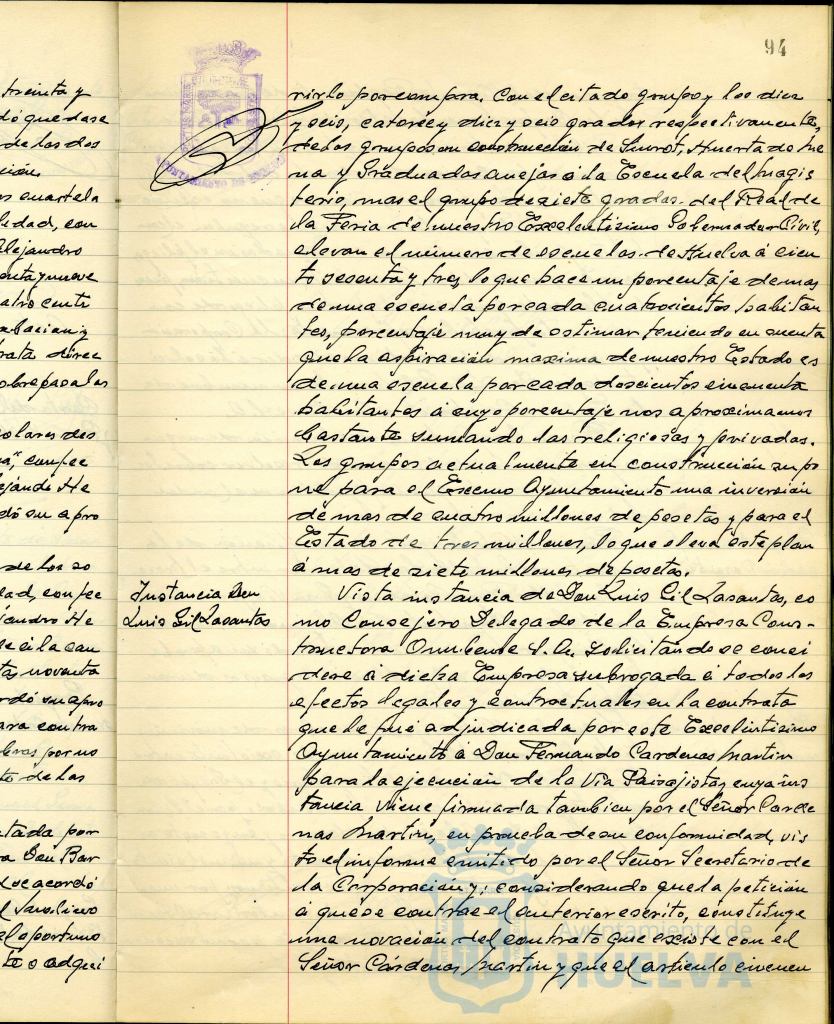 94
treinta y
dó quedase
de los dos
cuartela
lidad, con
Alejandro
enta y nueve
atro centi
probacion y
rata direc
sobrepasa las
olares des
na", confec
ejandro He
dó su apro
de los so
dad, confec
jandro He
se ci la can
tas noventa
rdó su apro
para contra
obras por no
to de las
ntada por
ra Don Bar
se acordó
el oportuno
to o adqui
rirlo por compra. Con el citado grupo y los diez
y ocio, catorce y diez y ocio grados respectivamente,
de los grupos en construcción de Quinot, Huerta de Me
na y Graduadas anejas á la Escuela del Magis
terio, mas el grupo de siete grados del Real de
la Feria de nuestro Excelentisimo Gobernador Civil,
elevan el número de escuelas de Huelva á cien
to sesenta y tres, lo que hace un porcentaje de mas
de una escuela por cada cuatrocientos habitan
tes, porcentaje muy de estimar teniendo en cuenta
que la aspiración maxima de nuestro Estado es
de una escuela por cada doscientos cincuenta
habitantes á cuyo porcentaje nos aproximamos
bastante sumando las religiosas y privadas.
Los grupos actualmente en construcción supo
ne para el Excmo Ayuntamiento una inversión
de mas de cuatro millones de pesetas y para el
Estado de tres millones, lo que eleva este plan
á mas de siete millones de pesetas.
Instancia Don
Luis Gil Lasantas
Vista instancia de Don Luis Gil Lasantas, co
mo Consejero Delegado de la Empresa Cons-
tructora Onubense S.A. solicitando se consi
dere á dicha Empresa subrogada á todos los
efectos legales y contractuales en la contrata
que le fué adjudicada por este Excelentisimo
Ayuntamiento á Don Fernando Cardenas Martin
para la ejecución de la Vía Paisajista, cuya ins
tancia viene firmada tambien por el Señor Carde
nas Martin, en prueba de su conformidad, vis
to el informe emitido por el Señor Secretario de
la Corporación y; considerando que la petición
á que se contrae el anterior escrito, constituye
una novación del contrato que existe con el
Señor Cárdenas Martin y que el articulo cincuen
Ayuntamiento de
HUELVA